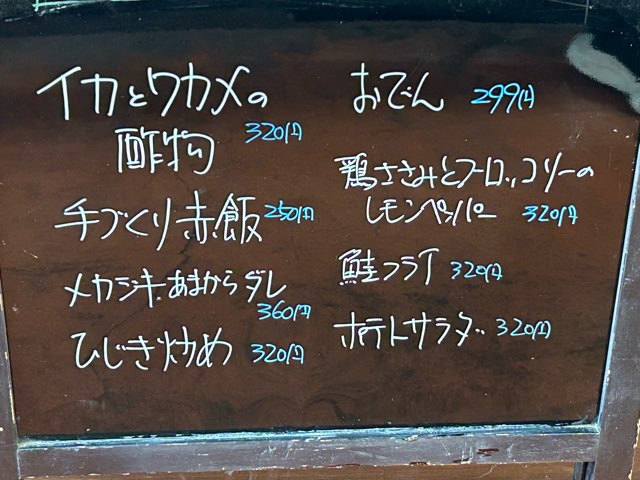 イカとワカメの
酢物 320円
手づくり赤飯 250円
メカジキあまからダレ
360円
ひじき炒め 320円
おでん 299円
鶏ささみとブロッコリーの
レモンペッパー 320円
鮭フライ 320円
ポテトサラダ 320円